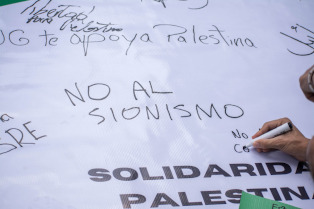 Libertad
para Palestina
UG te apoya Palestina
NO AL
SIONISMO
NO
CO
SOLIDARIDA
PALESTINA